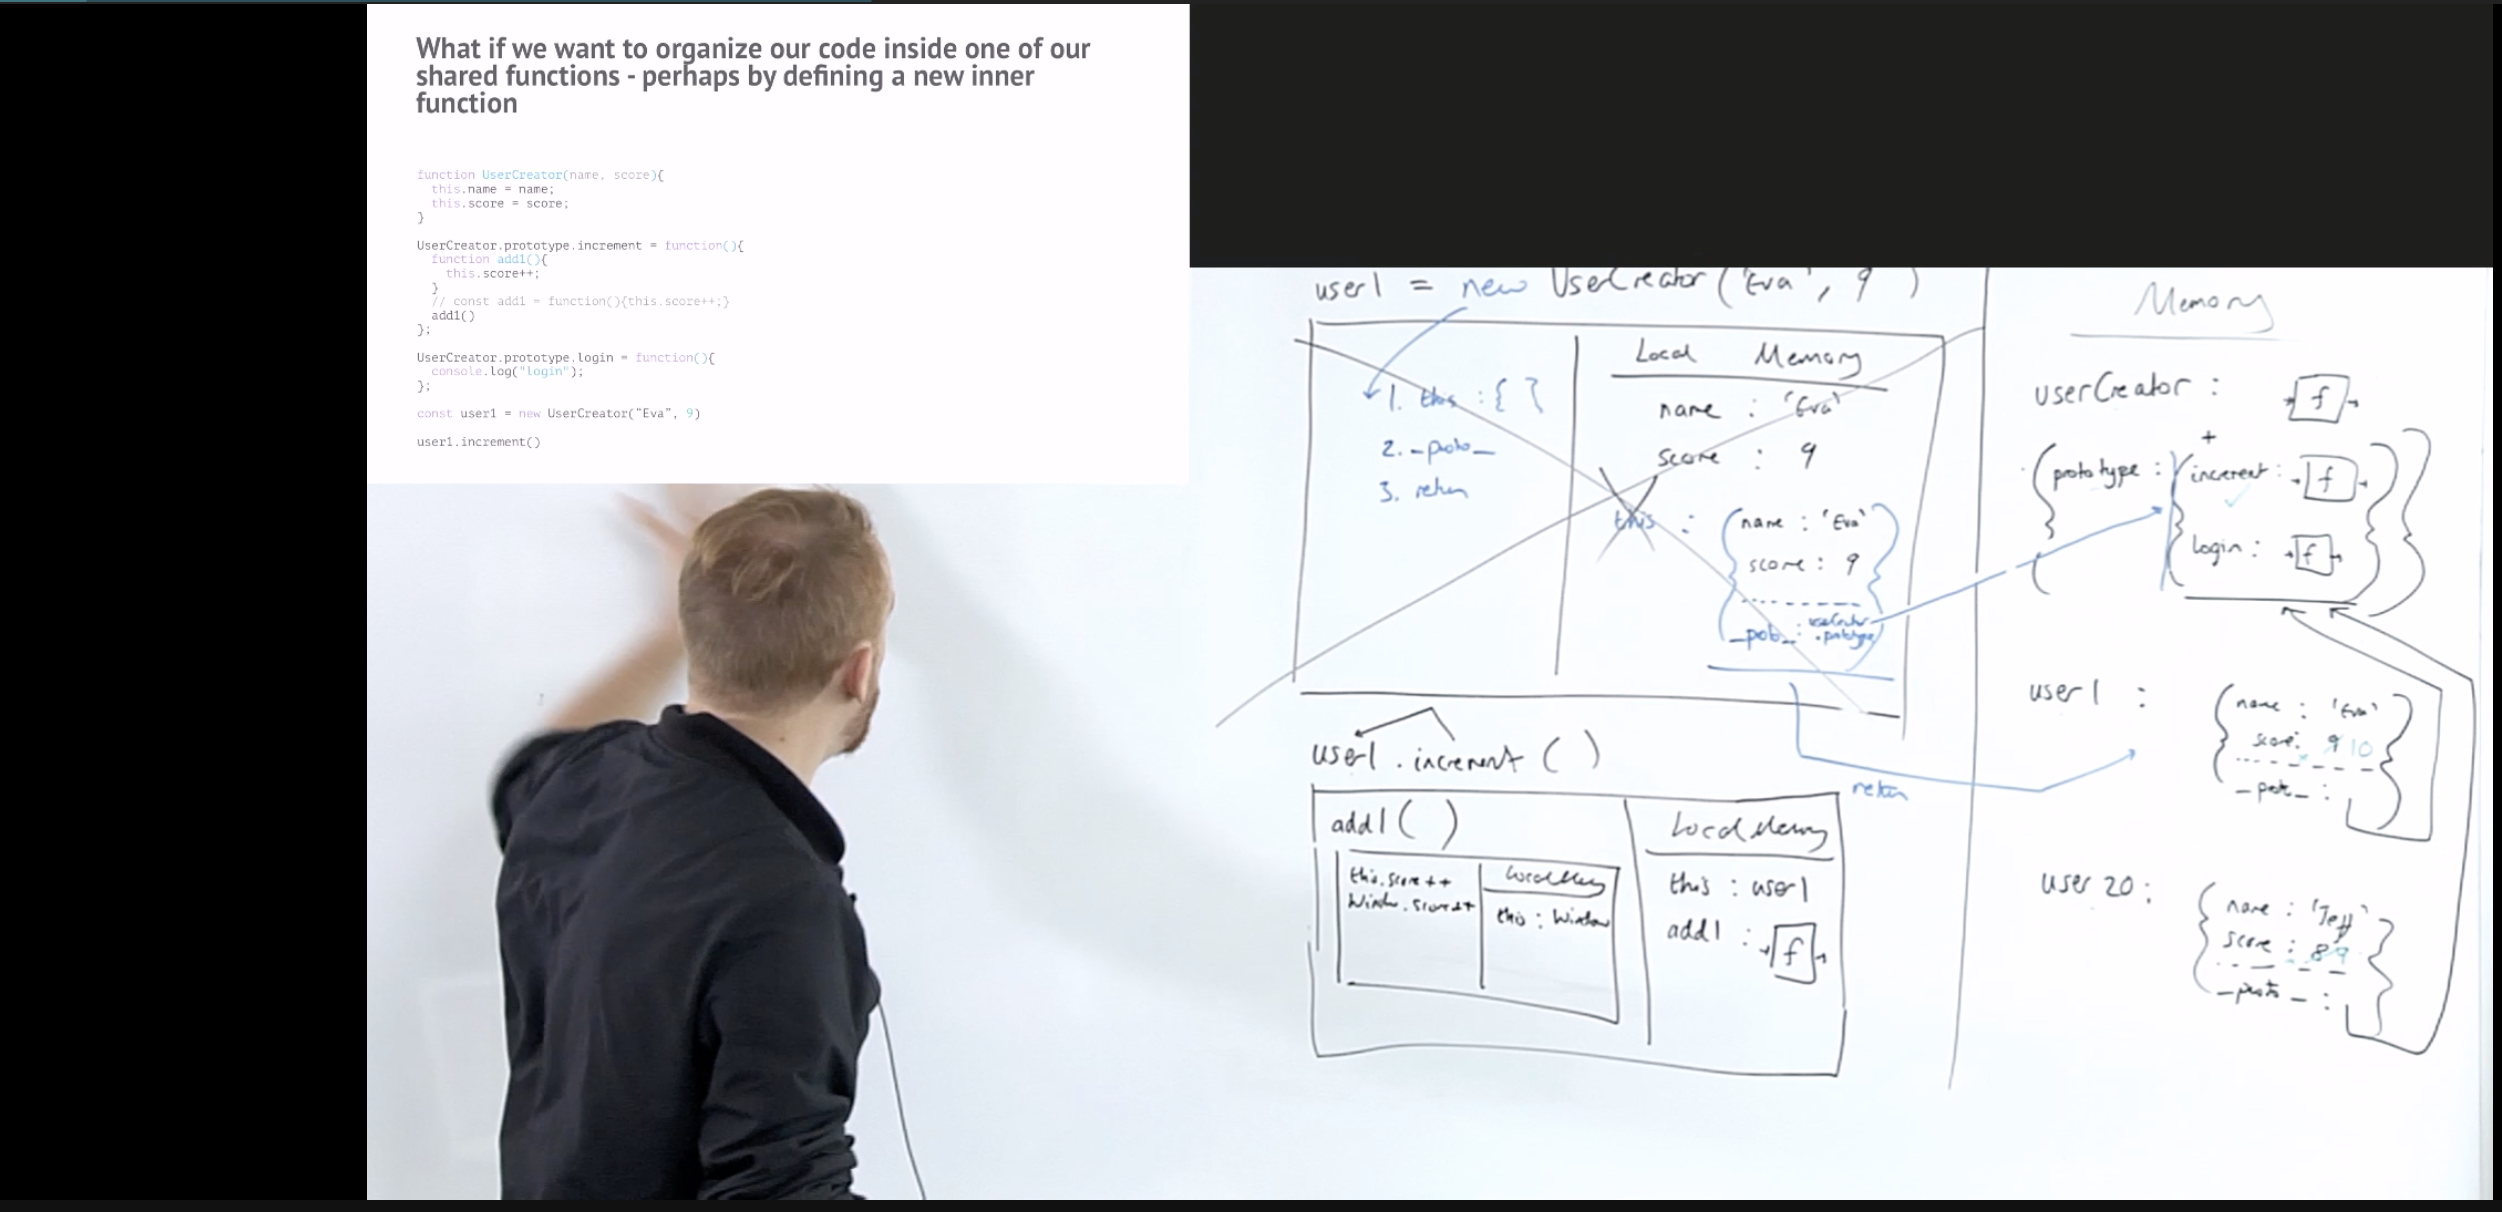 What if we want to organize our code inside one of our
shared functions - perhaps by defining a new inner
function
function UserCreator(name, score){
this.name = name;
this.score = score;
}
UserCreator.prototype.increment = function(){
function add1(){
this.score++;
}
// const add1 = function(){this.score++;}
add1()
};
UserCreator.prototype.login = function(){
console.log("login");
};
const user1 = new UserCreator("Eva", 9)
user1.increment()
user1 = new UserCreator('Eva', 9)
Local Memory
1. this : { }
name : 'Eva'
2. _proto_
score : 9
3. return
this : { name : 'Eva'
score : 9
_proto_ : userCreator
.prototype }
user1 . increment ( )
return
add1 ( )
Local Memory
this.score++
Window.score++
Local Memory
this : Window
this : user1
add1 : f
Memory
userCreator : f
+
{ prototype : { increment : f
login : f } }
user1 : { name : 'Eva'
score : 9 10
_proto_ : }
user 20 : { name : 'Jeff'
score : 8 9
_proto_ : }